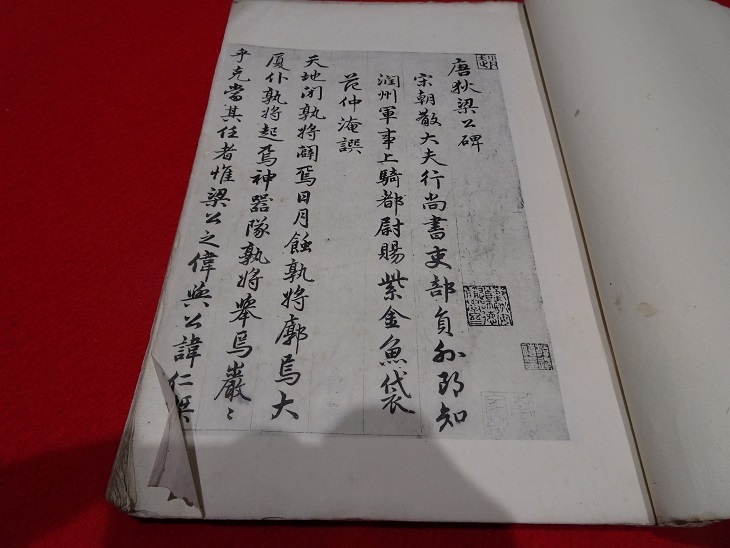 唐狄梁公碑
宋朝散大夫行尚書吏部員外郎知
潤州軍事上騎都尉賜紫金魚袋
范仲淹譔
天地閉孰將闢焉日月蝕孰將廓焉大
廈仆孰將起焉神器隊孰將舉焉巖〻
乎克當其任者惟梁公之偉與公諱仁傑